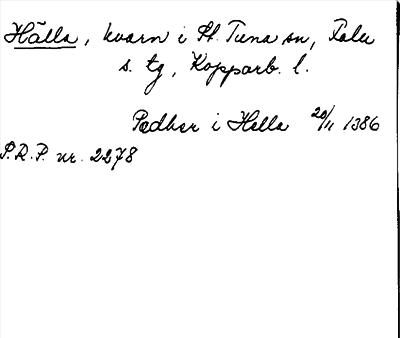 Hälla, kvarn i St. Tuna sn, Falu
s. tg, Kopparb. l.
Pædhar i Hella 20/11 1386
P.R.P. nr. 2278